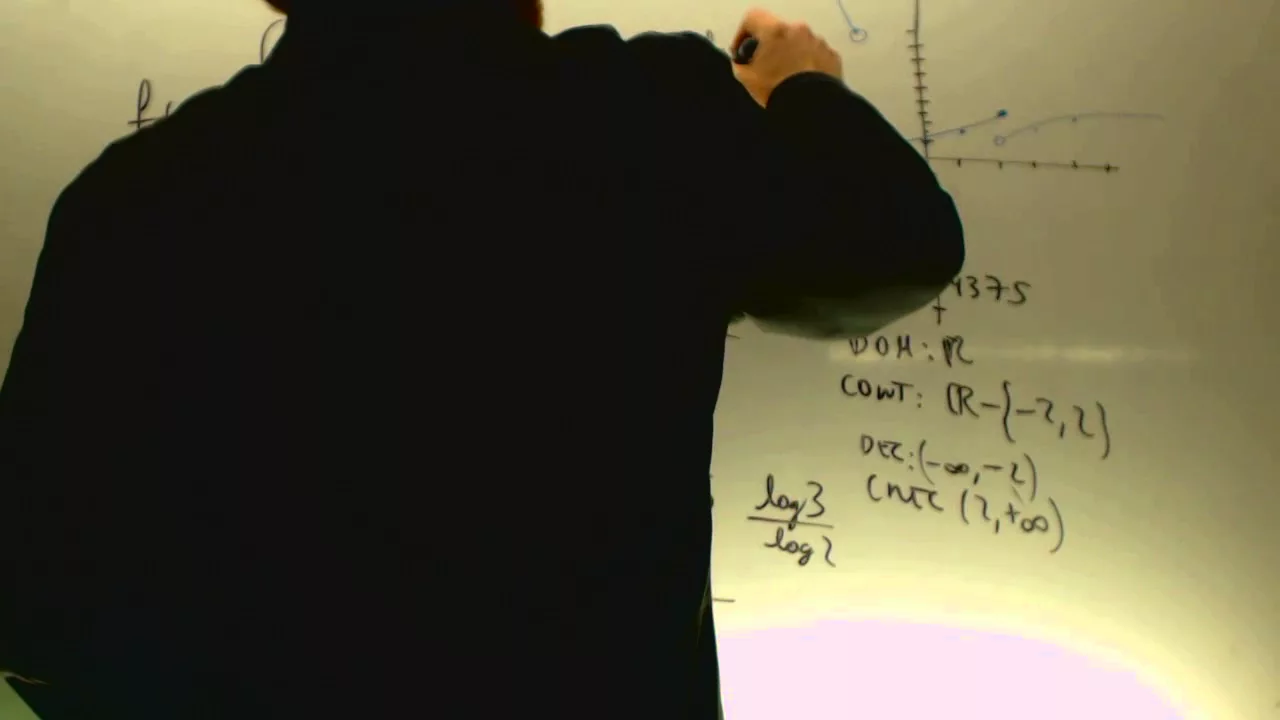 4375
DOM: ℝ
CONT: ℝ-{-2,2}
DEC: (-∞,-2)
CREC (2,+∞)
log3
log2